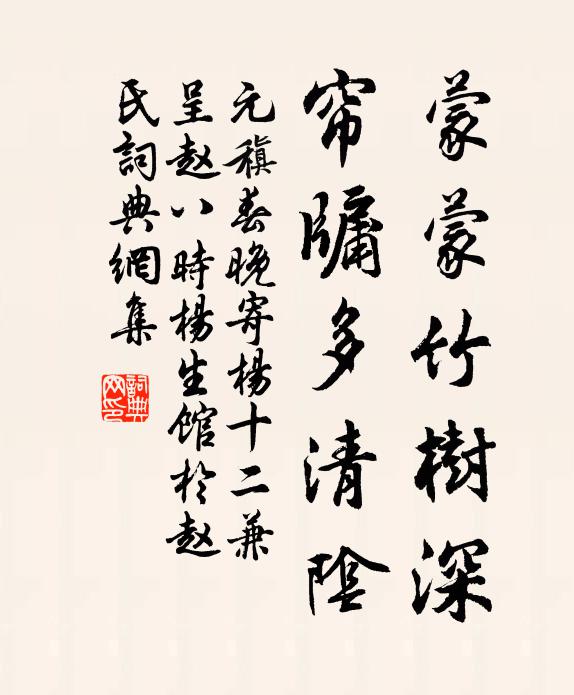 蒙蒙竹樹深
帘牖多清陰
元稹春晚寄楊十二兼
呈赵八時楊生馆於赵
氏詞典網集
詞典网印